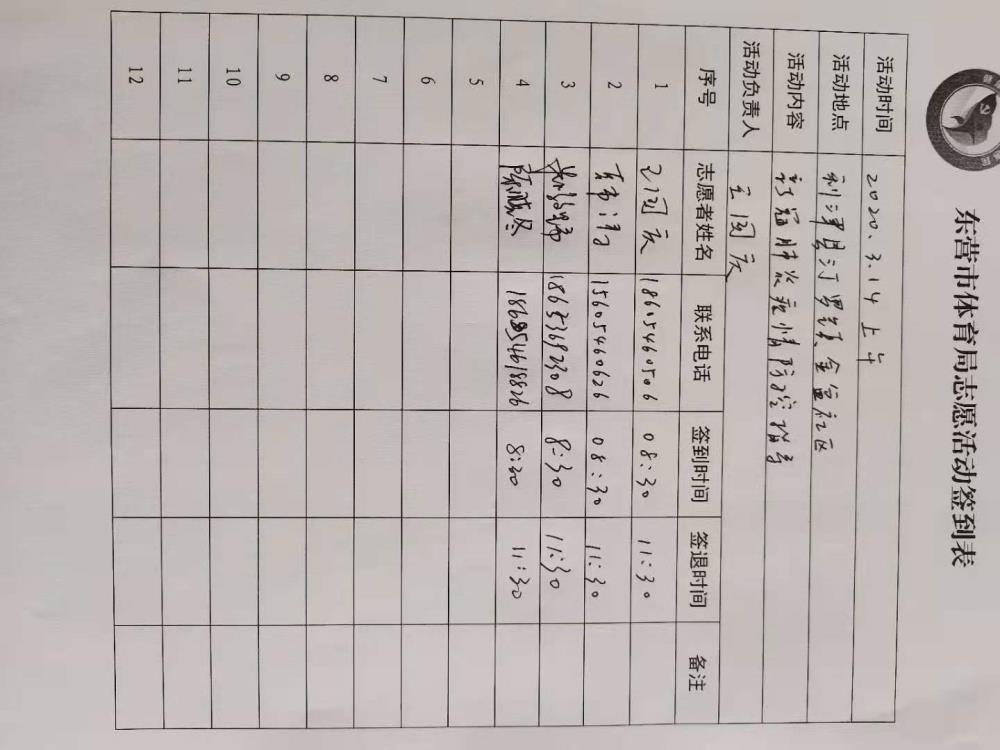 东营市体育局志愿活动签到表
活动时间 2020.3.14 上午
活动地点 利津县汀罗镇金盆社区
活动内容 新冠肺炎疫情防控指导
活动负责人 王闵庆
序号 志愿者姓名 联系电话 签到时间 签退时间 备注
1 18605460506 08:30 11:30
2 15605460626 08:30 11:30
3 18653692308 8:30 11:30
4 8:30 11:30
5
6
7
8
9
10
11
12